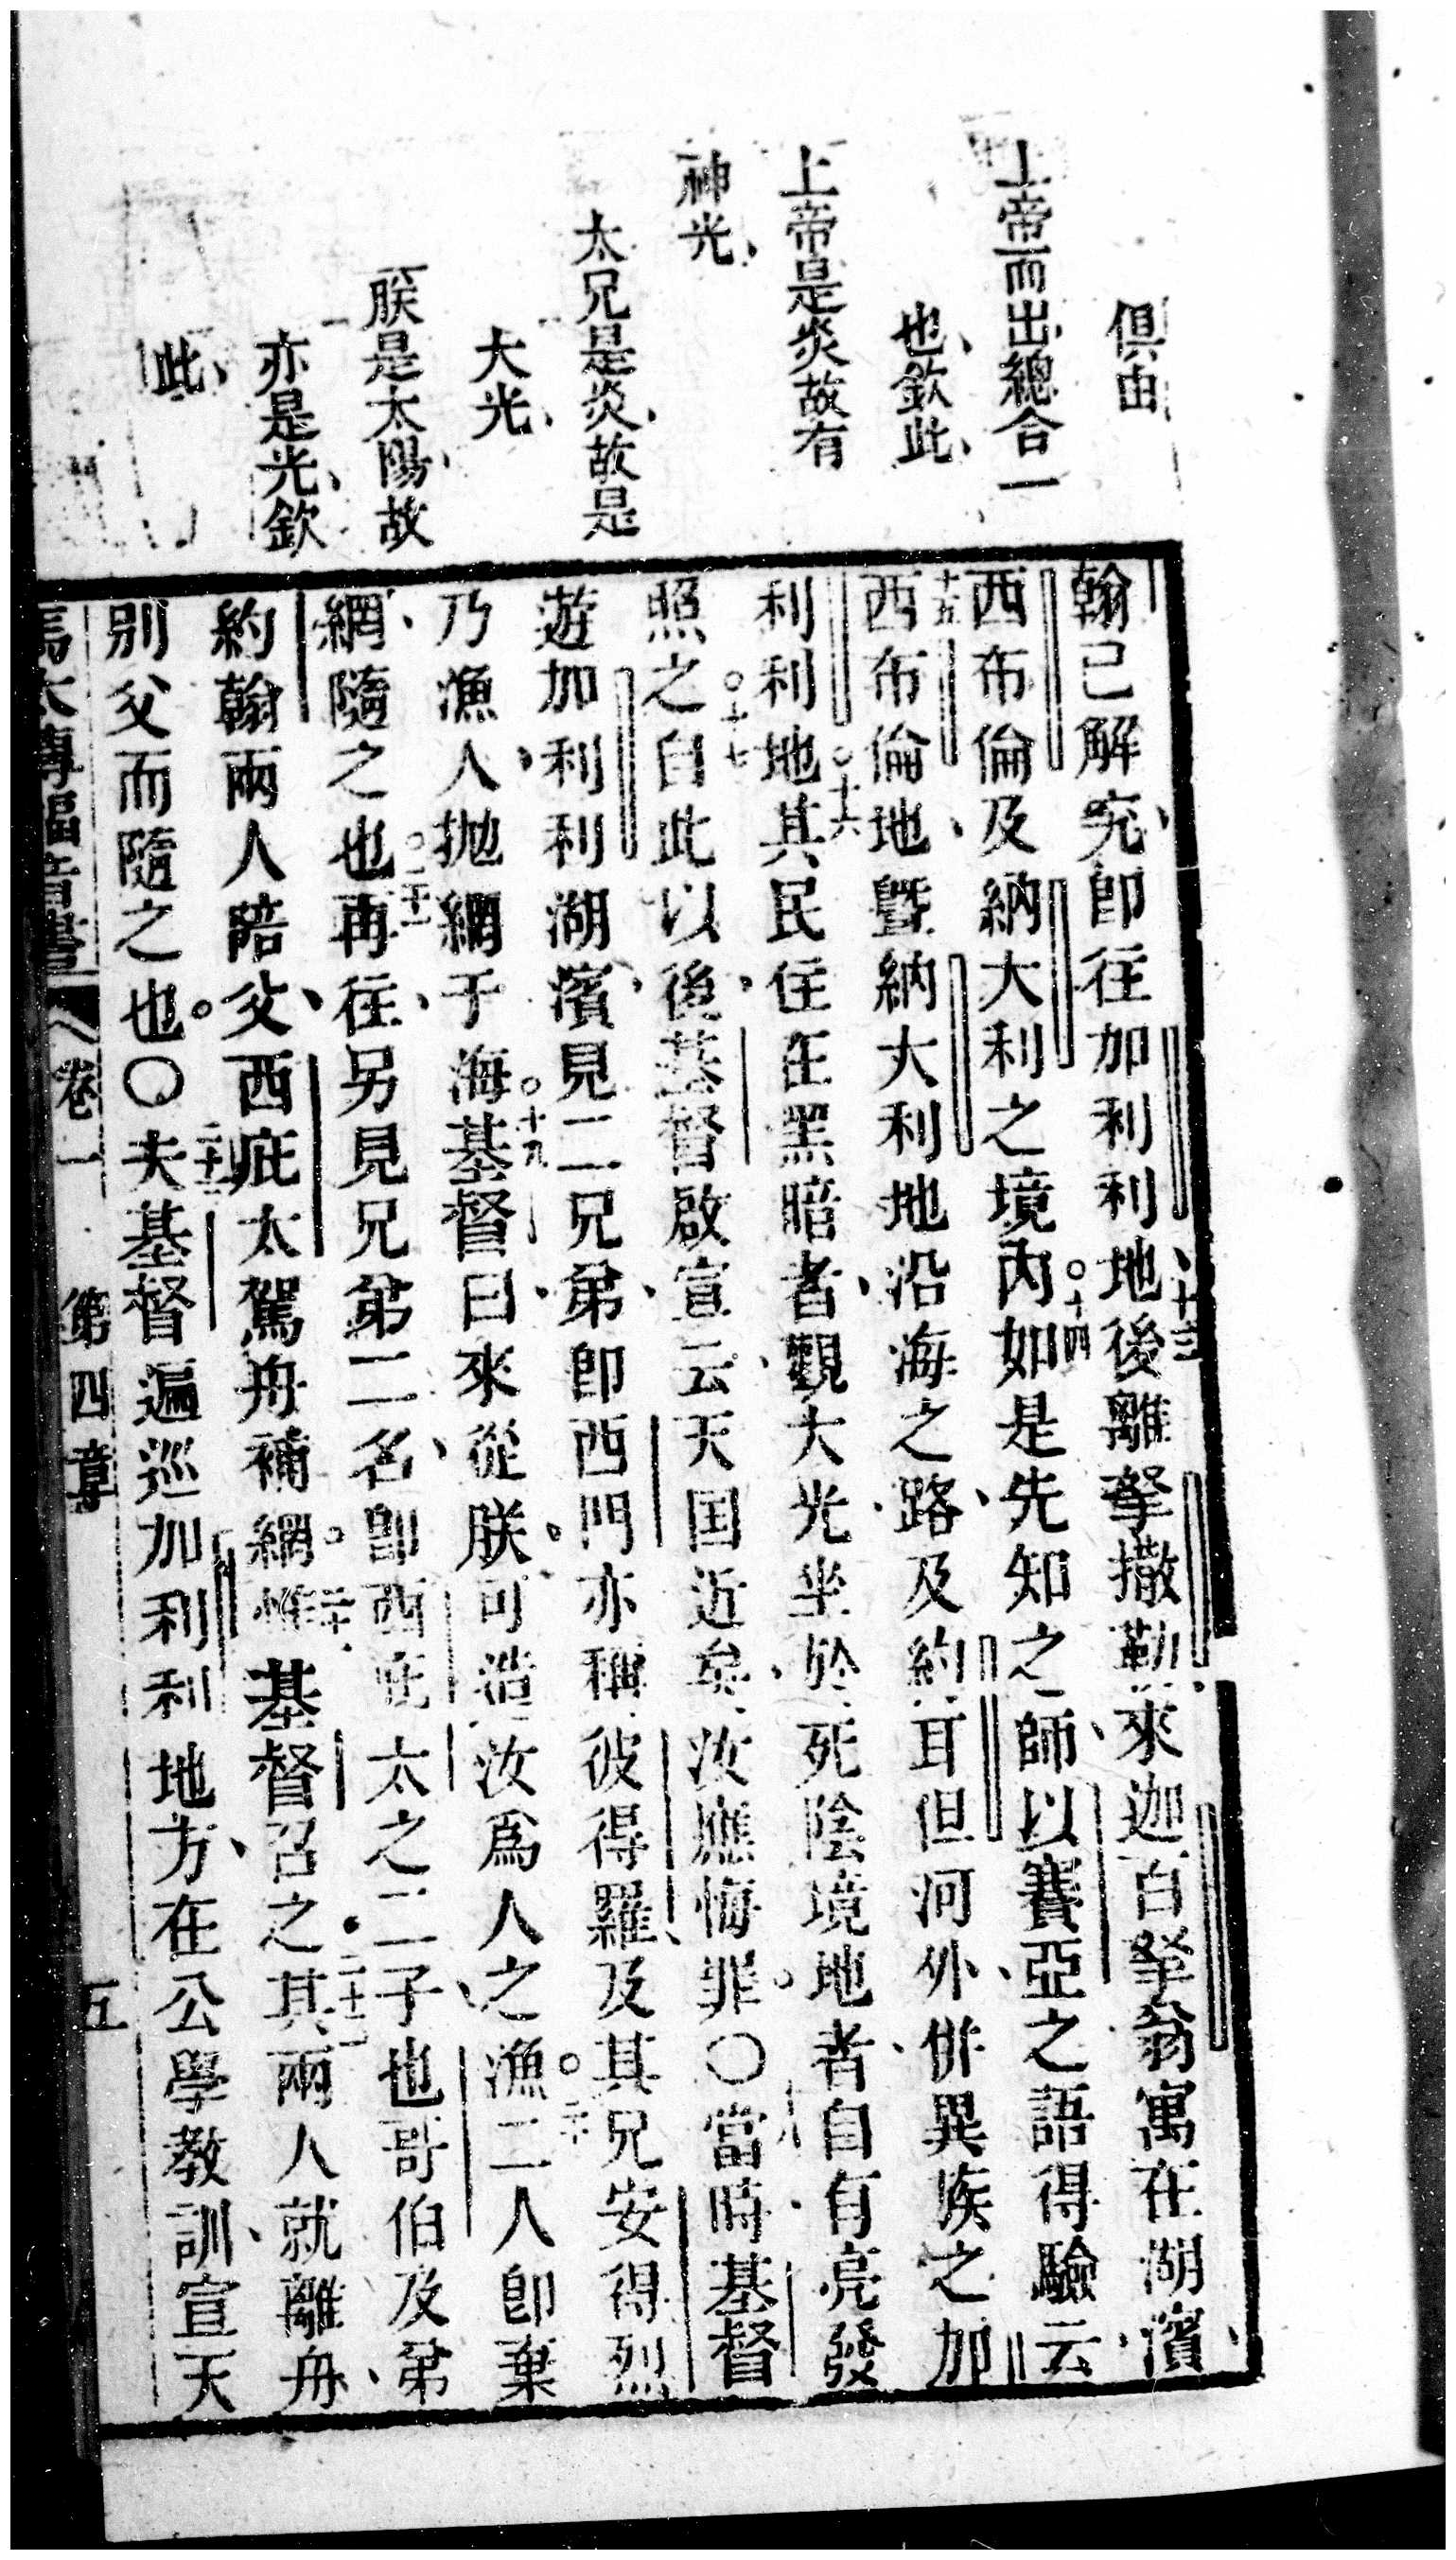 俱由
上帝而出總合一
也欽此
上帝是炎故有
神光
太兄是炎故是
大光
朕是太陽故
亦是光欽
此
翰已解究卽往加利利地十三後離拏撒勒來迦百拏翁寓在湖濱
西布倫及納大利之境內十四如是先知之師以賽亞之語得驗云
十五西布倫地曁納大利地沿海之路及約耳但河外併異族之加
利利地十六其民住在黑暗者觀大光坐於死陰境地者自有亮發
照之十七自此以後基督啟宣云天国近矣汝應悔罪〇十八當時基督
遊加利利湖濱見二兄弟卽西門亦稱彼得羅及其兄安得烈
乃漁人拋網于海十九基督曰來從朕可造汝爲人之漁二十二人卽棄
網隨之也二十一再往另見兄弟二名卽西庇太之二子也哥伯及弟
約翰兩人陪父西庇太駕舟補網惟基督召之二十二其兩人就離舟
別父而隨之也〇二十三夫基督遍巡加利利地方在公學教訓宣天
馬太傳福音書 卷一 第四章 五